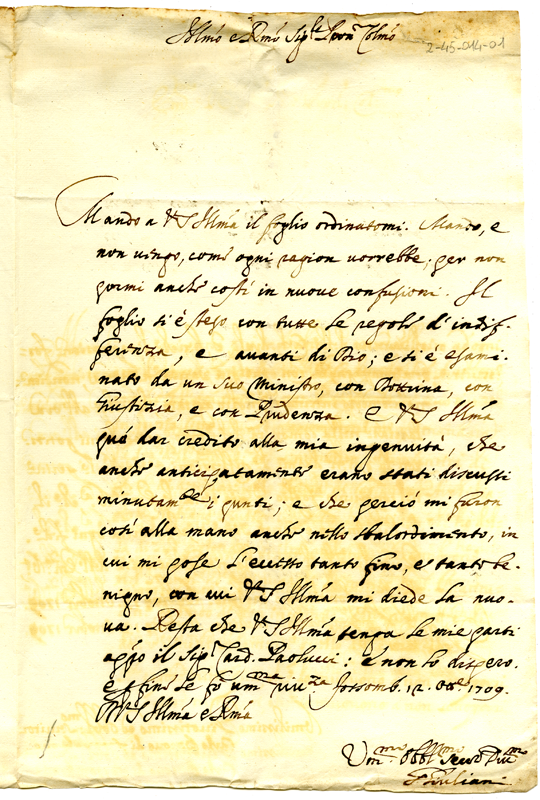 Illmo e Rmo Sigre Pron Colmo
2-45-014-01
Mando a V S Illma il foglio ordinatomi. Mando, e
non vengo, come ogni ragion vorrebbe; per non
pormi anche costì in nuove confusioni. Il
foglio si è steso con tutte le regole d'indif-
ferenza, e avanti di Dio; e si è esami-
nato da un suo Ministro, con Dottrina, con
Giustizia, e con Prudenza. E V S Illma
può dar credito alla mia ingenuità, che
anche anticipatamente erano stati discussi
minutamte i punti; e che perciò mi furon
così alla mano anche nello sbalordimento, in
cui mi pose l'eccesso tanto fino, e tanto be-
nigno, con cui V S Illma mi diede la nuo-
va. Resta che V S Illma tenga le mie parti
appo il Sigr Card. Paolucci: e non lo dispero.
E per fine le fo umma rivza. Fossomb. 12. 1709.
Di V S Illma e Rma
Vmo Obblmo